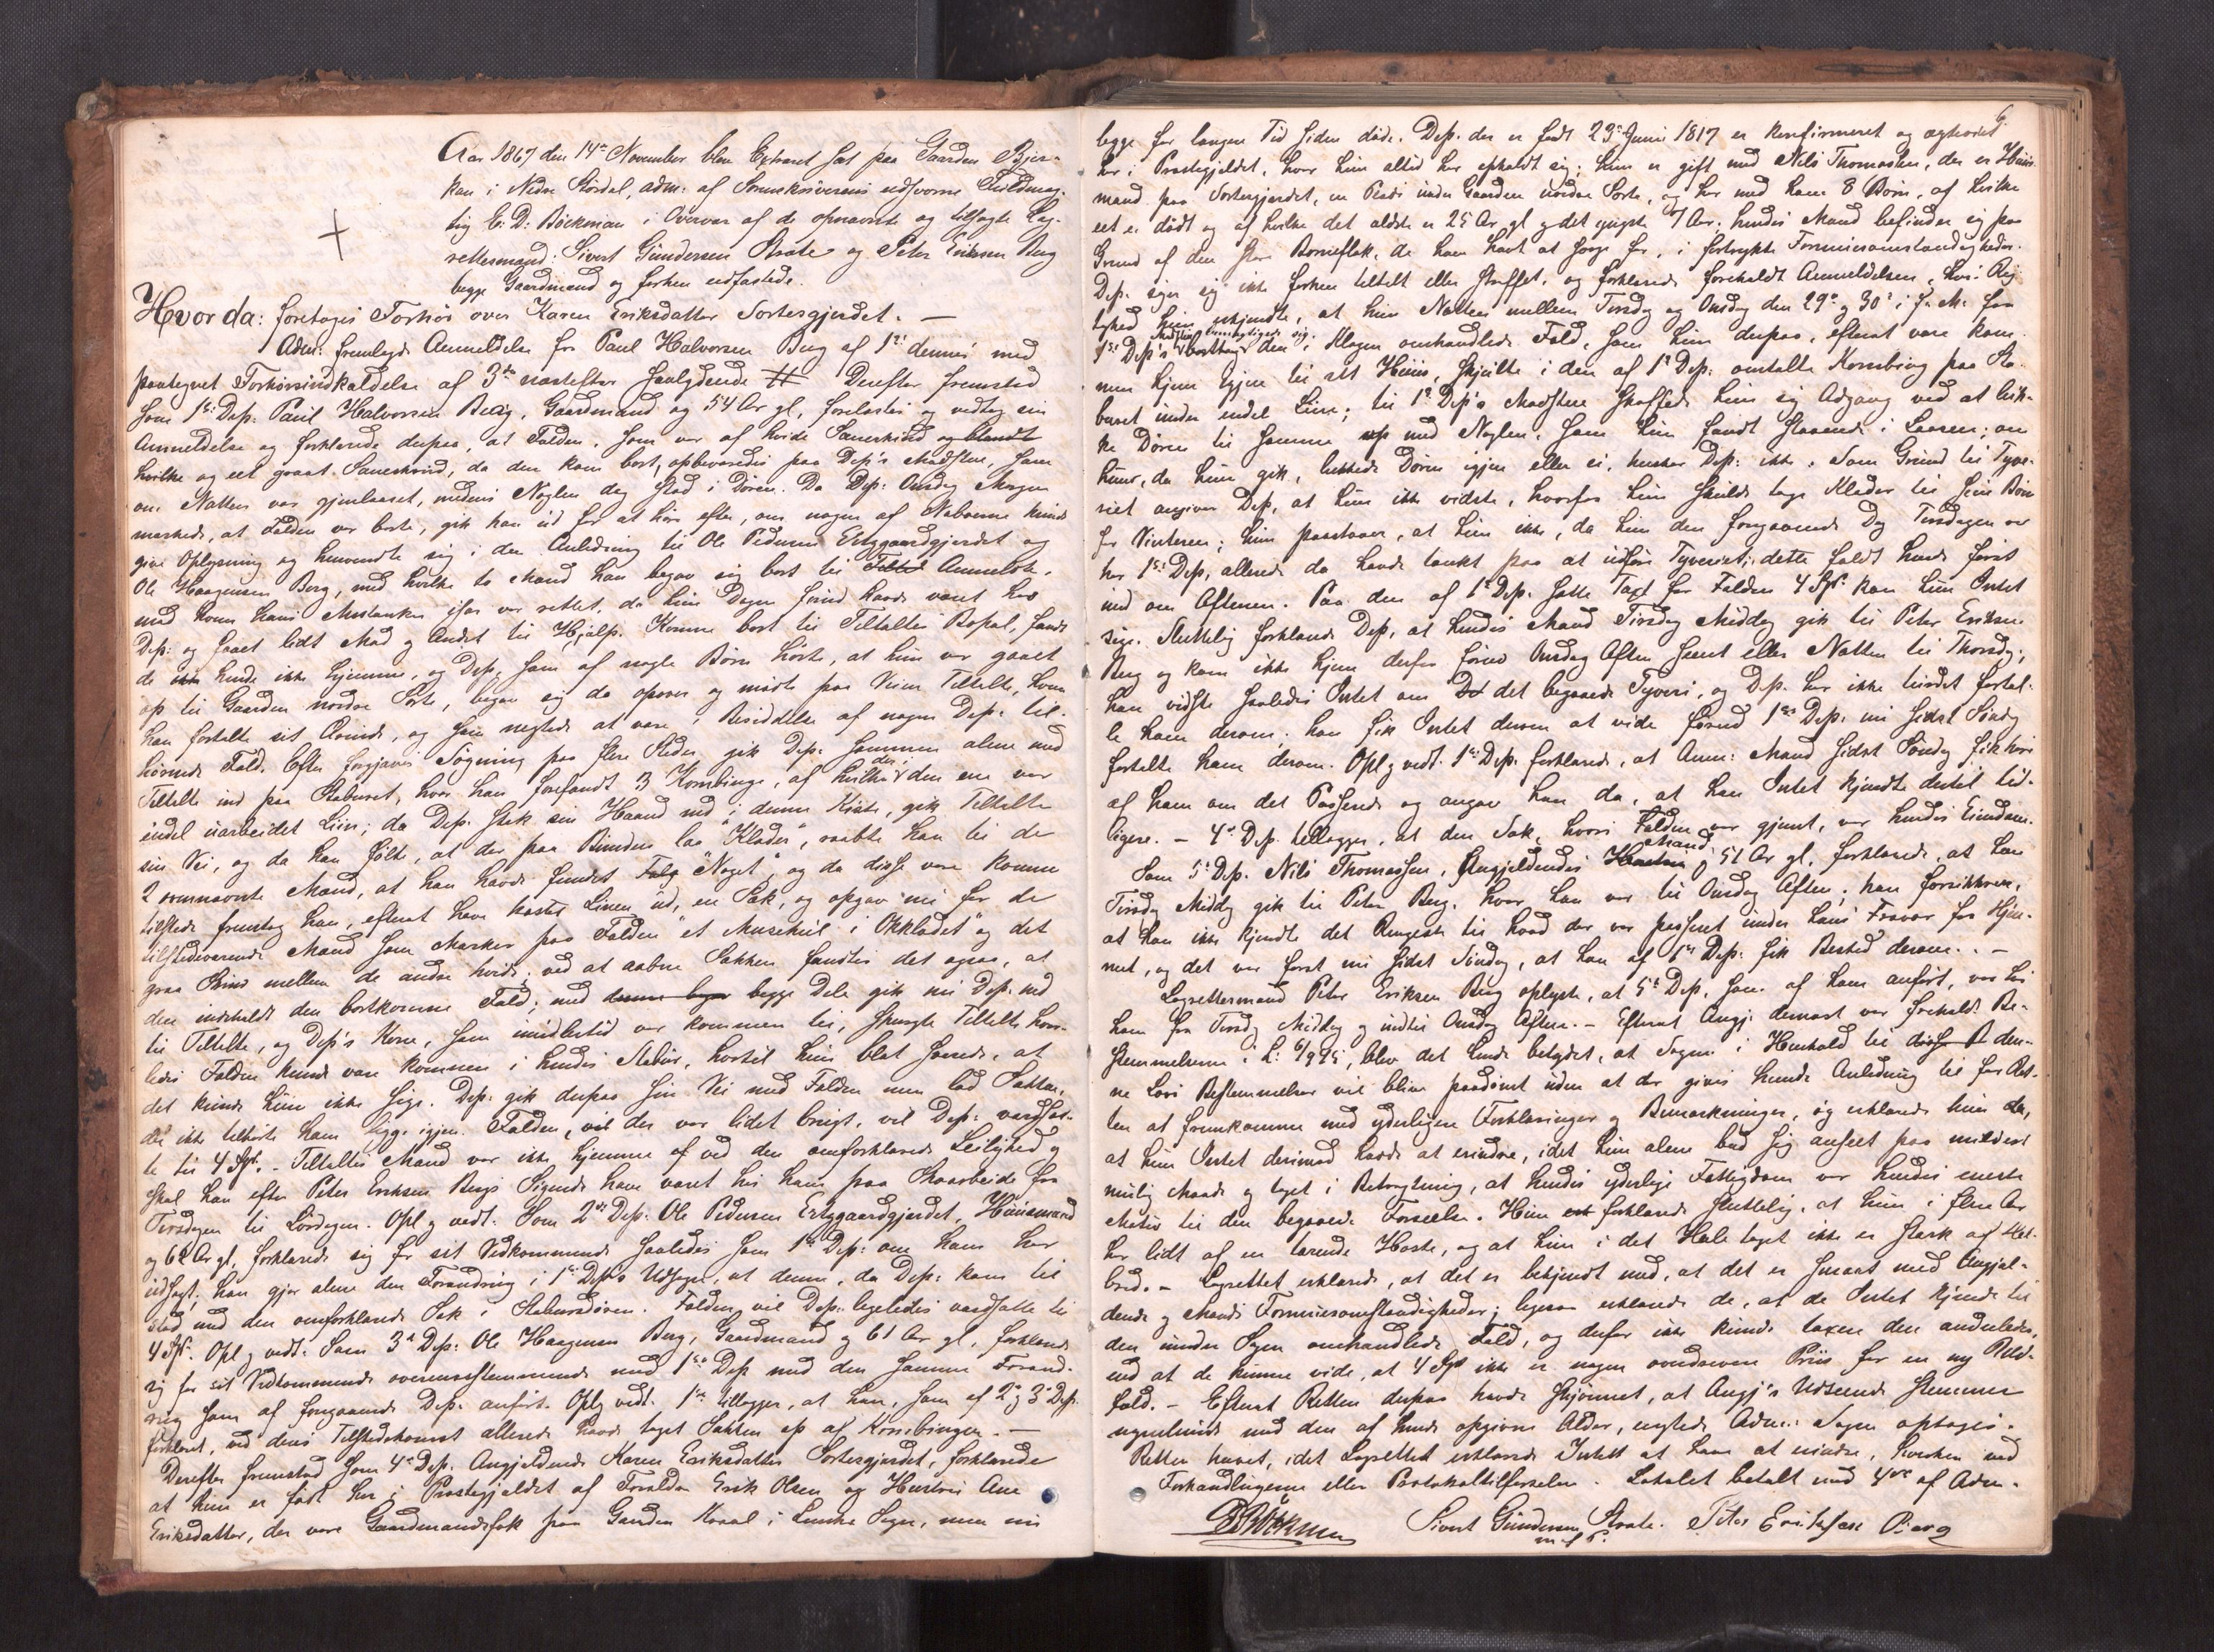 Aar 1867 den 14de November blev Extraret sat paa Gaarden Bjer-
kan i Nedre Stördal, adm: af Sorenskriverens edsvorne Fuldmæg-
tig C. D: Böckman i Overvær af de opnævnte og tilsagte Lag-
rettesmænd: Sivert Gundersen Arate og Peter Eriksen Berg
begge Gaardmænd og forhen edfæstede.
Hvor da: foretoges Forhör over Karen Eriksdatter Sortergjerdet. —
Adm: fremlagde Anmeldelse fra Paul Halvorsen Berg af 1ste dennes med
paategnet Forhörsindkaldelse af 3die næstefter saalydende # Derefter fremstod
som 1ste Dep: Paul Halvorsen Berg, Gaardmand og 54 Aar gl, forelæstes og vedtog sin
Anmeldelse og forklarede derpaa, at Falden, som var af hvide Saueskind og blandt
hvilke og eet graat Saueskind, da den kom bort, opbevaredes paa Dep's Madstue, som
om Natten var gjenlaaset, medens Nöglen dog stod i Dören. Da Dep: Onsdag Morgen
mærkede, at Falden var borte, gik han ud for at höre efter, om nogen af Naboerne kunde
give Oplysning og henvendte sig i den Anledning til Ole Pedersen Ertsgaardgjerdet og
Ole Haagensen Berg, med hvilke to Mænd han begav sig bort til Tiltal Anmeldte,
mod hvem hans Mistanke især var rettet, da hun Dagen forud havde været hos
Dep: og faaet lidt Mad og Andet til Hjælp. Komne bort til Tiltaltes Bopæl, fandt
de ikke hende ikke hjemme, og Dep, som af nogle Börn hörte, at hun var gaaet
op til Gaarden nordre Sorte, begav sig da opover og mödte paa Veien Tiltalte, hvem
han fortalte sit Ærinde, og som negtede at være i Besiddelse af nogen Dep: til-
hörende Fald. Efter forgjæves Sögning paa flere Steder gik Dep: sammen alene med
Tiltalte ind paa Staburet, hvor han forefandt 3 Kornbinge, af hvilke der i den ene var
endel uarbeidet Liin; da Dep. stak sin Haand ned i denne Kiste, gik Tiltalte
sin Vei, og da han fölte, at der paa Bunden laa "Klæder", raabte han til de
2 ovennævnte Mænd, at han havde fundet Falg "Noget", og da disse vare komne
tilstede fremtog han, efterat have kastet Linen ud, en Sæk, og opgav nu for de
tilstedeværende Mænd som Mærker paa Falden "et Musehul i Okklædet" og det
graa Skind mellem de andre hvide; ved at aabne Sækken fandtes det ogsaa, at
den indeholdt den bortkomne Fald; med denne begav begge Dele gik nu Dep. ned
til Tiltalte, og Dep's Kone, som imidlertid var kommen til, spurgte Tiltalte hvor-
ledes Falden kunde være kommen i hendes Stabur, hvortil hun blot svarede, at
det kunde hun ikke sige. Dep: gik derpaa sin Vei med Falden men lod Sækken,
der ikke tilhörte ham ligge igjen. Falden, vil der var lidet brugt, vil Dep: værdsæt-
te til 4 Spd. - Tiltaltes Mand var ikke hjemme af ved den omforklarede Leilighed og
skal han efter Peter Eriksen Bergs Sigende have været hos ham paa Skaarbeide fra
Tirsdagen til Lördagen. Opl og vedt: Som 2den Dep: Ole Pedersen Ertsgaardgjerdet, Huusmand
og 62 Aar gl, forklarede sig for sit Vedkommende saaledes som 1ste Dep: om ham har
udsagt; han gjör alene den Forandring i 1ste Dep's Udsagn, at denne, da Dep: kom til
stod med den omforklarede Sæk i Stabursdören. Falden vil Dep: ligeledes værdsætte til
4 Spd. Opl og vedt: Som 3die Dep: Ole Haagensen Berg, Gaardmand og 61 Aar gl, forklarede
sig for sit Vedkommende overensstemmende med 1ste Dep med den samme Forand-
ring som af foregaaende Dep: anfört. Opl og vedt. 1ste tillægger, at han, som af 2den og 3die Dep:
forklaret, ved deres Tilstedekomst allerede havde taget Sækken op af Kornbingen. —
Derefter fremstod som 4de Dep. Angjældende Karen Eriksdatter Sortergjerdet, forklarede
at hun er födt her i Præstegjældet af Forældre Erik Olsen og Hustru Ane
Eriksdatter, der vare Gaardmandsfolk paa Gaarden Kvaal i Lunke Sogn, men nu
6
begge for langen Tid siden döde. Dep. der er född 23de Juni 1817 er konfirmeret og ægteviet
her i Præstegjeldet, hvor hun altid har opholdt sig; hun er gift med Nils Thomassen, der er Huus-
mand paa Sortergjerdet, en Plads under Gaarden nordre Sorte, og har med ham 8 Börn, af hvilke
eet er dödt og af hvilke det ældste er 25 Aar gl og det yngste 7 Aar; hendes Mand befinder sig paa
Grund af den store Börneflok, de have havt at sörge for, i fortrykte Formuesomstændigheder.
Dep. siger sig ikke forhen tiltalt eller straffet, og forklarede foreholdt Anmeldelsen, hvis Rig-
tighed hun erkjendte, at hun Natten mellem Tirsdag og Onsdag den 29de og 30te i f. M. fra
1ste Dep's Madstue bemægtigede sig borttog den i Klagen omhandlede Fald, som hun derpaa, efterat være kom-
men hjem igjen til sit Huus, skjulte i den af 1ste Dep. omtalte Kornbing paa Sta-
buret under endel Liin; til 1ste Dep's Madstue skaffede hun sig Adgang ved at luk-
ke Dören til samme op med Nöglen, som hun fandt staaende i Laasen; om
hun, da hun gik, lukkede Dören igjen eller ei, husker Dep: ikke. Som Grund til Tyve-
riet angiver Dep, at hun ikke vidste, hvorfra hun skulde tage Klæder til sine Börn
for Vinteren; hun paastaar, at hun ikke, da hun den foregaaende Dag Tirsdagen var
hos 1ste Dep, allerede da havde tænkt paa at udföre Tyveriet; dette faldt hende först
ind om Aftenen. Paa den af 1ste Dep. satte Taxt for Falden 4 Spd kan hun Intet
sige. Sluttelig forklarede Dep, at hendes Mand Tirsdag Middag gik til Peter Eriksen
Berg og kom ikke hjem derfra förend Onsdag Aften seent eller Natten til Thorsdag;
han vidste saaledes Intet om Det det begaaede Tyveri, og Dep. har ikke turdet fortæl-
le ham derom; han fik Intet derom at vide förend 1ste Dep. nu sidst Söndag
fortalte ham derom. Opl og vedt. 1ste Dep. forklarede, at Anm: Mand sidst Söndag fik höre
af ham om det Passerede og angav han da, at han Intet kjendte dertil tid-
ligere. - 4de Dep. tillægger, at den Sæk, hvori Falden var gjemt, var hendes Eiendom.
Som 5te Dep. Nils Thomassen, Angjeldendes Hustru Mand og 51 Aar gl, forklarede, at han
Tirsdag Middag gik til Peter Berg, hvor han var til Onsdag Aften; han forsikkrer,
at han ikke kjendte det Ringeste til hvad der var passeret under hans Fravær fra Hjem-
met, og det var först nu sidst Söndag, at han af 1ste Dep: fik Besked derom. -
Lagrettesmand Peter Eriksen Berg oplyste, at 5te Dep, som af ham anfört, var hos
ham fra Tirsdag Middag og indtil Onsdag Aften. - Efterat Angj: dernæst var foreholdt Be-
stemmelserne i L: 6/9 45, blev det hende betydet, at Sagen i Henhold til disse B den-
ne Lovs Bestemmelser vil blive paadömt uden at der gives hende Anledning til for Ret-
ten at fremkomme med yderligere Forklaringer og Bemærkninger, og erklærede hun da,
at hun Intet derimod havde at erindre, idet hun alene bad sig anseet paa mildest
mulig Maade og taget i Betragtning, at hendes yderlige Fattigdom var hendes eneste
Motiv til den begaaede Forseelse. Hun erk forklarede sluttelig, at hun i flere Aar
har lidt af en tærende Hoste, og at hun i det Hele taget ikke er stærk af Hel-
bred. - Lagrettet erklærede, at det er bekjendt med, at det er smaat med Angjæl-
dende og Mands Formuesomstændigheder; ligesaa erklærede de, at de Intet kjende til
den under Sagen omhandlede Fald, og derfor ikke kunde taxere den anderledes,
end at de kunne vide, at 4 Spd ikke er nogen overdreven Priis for en ny Skind-
fald. - Efterat Retten derpaa havde skjönnet, at Angj's Udseende stemmer
nogenlunde med den af hende opgivne Alder, begjerede Adm: Sagen optaget.
Retten hævet, idet Lagrettet erklærede Intet at have at erindre, hverken ved
Forhandlingerne eller Protokoltilförselen. Lokalet betalt med 4 af Adm.
Böckman Sivert Gundersen Arate. Peter Eriksen Bierg
m. f. P.